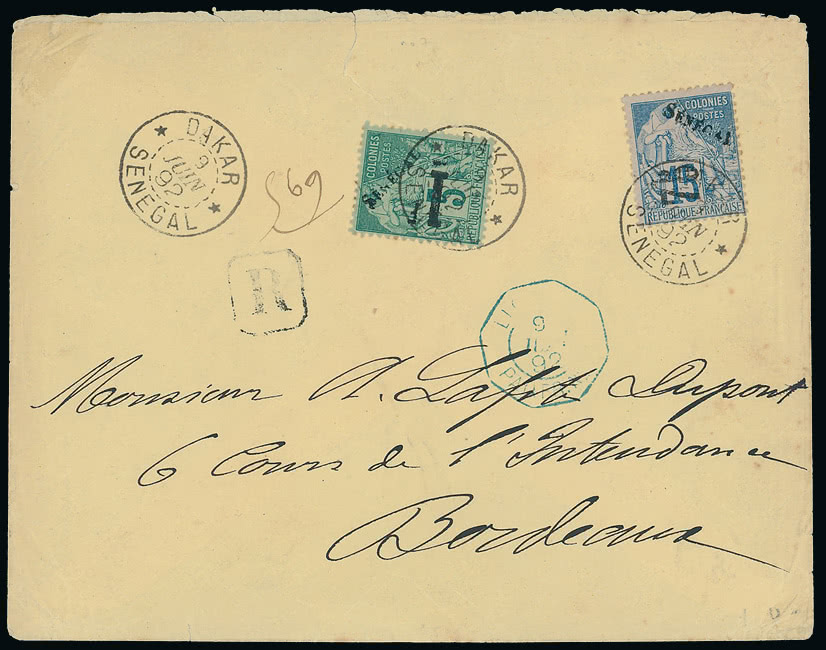 DAKAR
9
JUIN
92
SENEGAL
569
COLONIES
POSTES
SENEGAL
DAKAR
COLONIES
POSTES
SENEGAL
15
RÉPUBLIQUE FRANÇAISE
92
SENEGAL
R
9
Monsieur A. Lafite Dupont
6 Cours de l'Intendance
Bordeaux